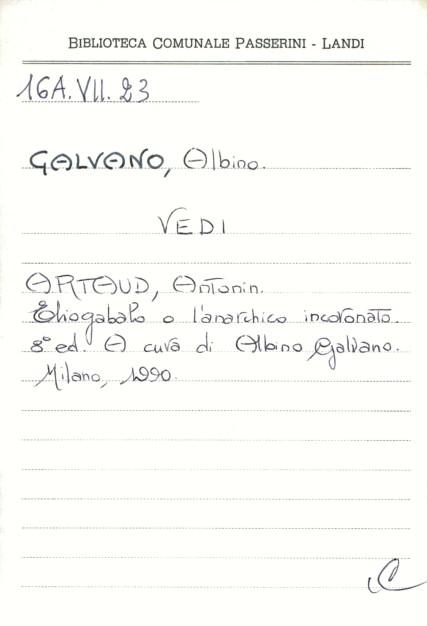 BIBLIOTECA COMUNALE PASSERINI - LANDI
16A.VII.23
GALVANO, Albino.
VEDI
ARTAUD, Antonin.
Eliogabalo o l'anarchico incoronato.
8° ed. A cura di Albino Galvano.
Milano, 1990.
C